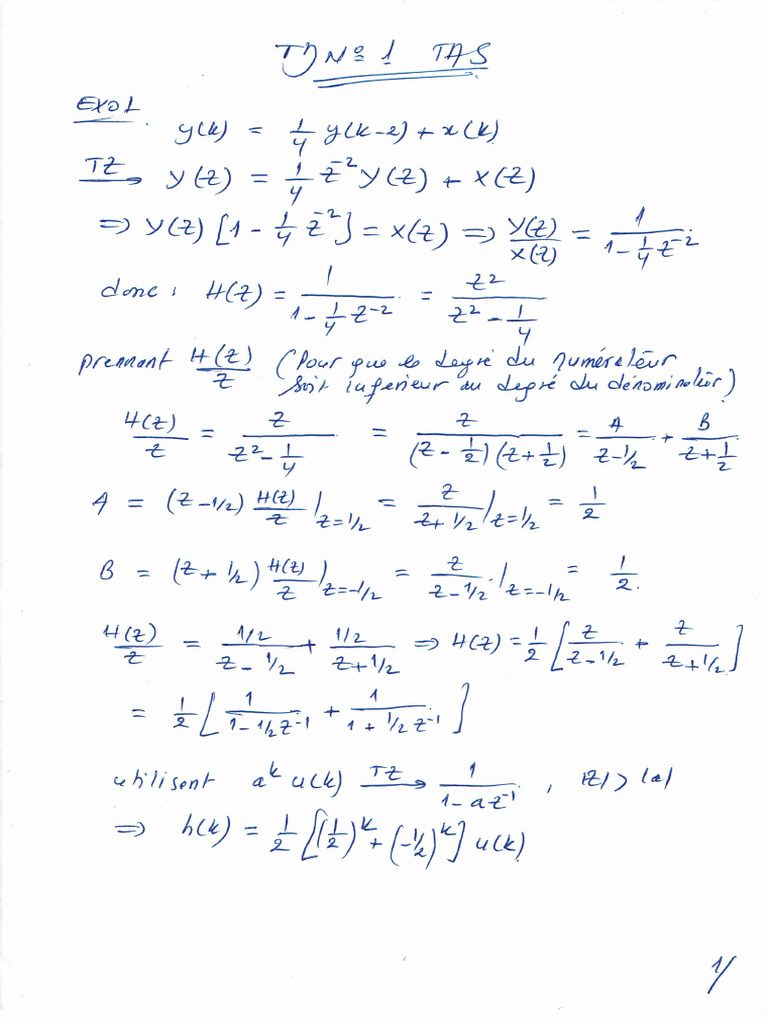 TD N° 1 TAS
EXO1
y(k) = 1/4 y(k-2) + x(k)
TZ→ Y(Z) = 1/4 Z^-2 Y(Z) + X(Z)
⇒ Y(Z) [1 - 1/4 Z^-2] = X(Z) ⇒ Y(Z)/X(Z) = 1/(1 - 1/4 Z^-2)
donc : H(Z) = 1/(1 - 1/4 Z^-2) = Z^2/(Z^2 - 1/4)
prennant H(Z)/Z (Pour que le degré du numérateur
soit inferieur au degré du dénominateur)
H(Z)/Z = Z/(Z^2 - 1/4) = Z/((Z - 1/2)(Z + 1/2)) = A/(Z - 1/2) + B/(Z + 1/2)
A = (Z - 1/2) H(Z)/Z |Z=1/2 = Z/(Z + 1/2) |Z=1/2 = 1/2
B = (Z + 1/2) H(Z)/Z |Z=-1/2 = Z/(Z - 1/2) . |Z=-1/2 = 1/2.
H(Z)/Z = 1/2/(Z - 1/2) + 1/2/(Z + 1/2) ⇒ H(Z) = 1/2 [Z/(Z - 1/2) + Z/(Z + 1/2)]
= 1/2 [1/(1 - 1/2 Z^-1) + 1/(1 + 1/2 Z^-1)]
utilisent a^k u(k) TZ→ 1/(1 - a Z^-1) , |Z| > |a|
⇒ h(k) = 1/2 [(1/2)^k + (-1/2)^k] u(k)
1/